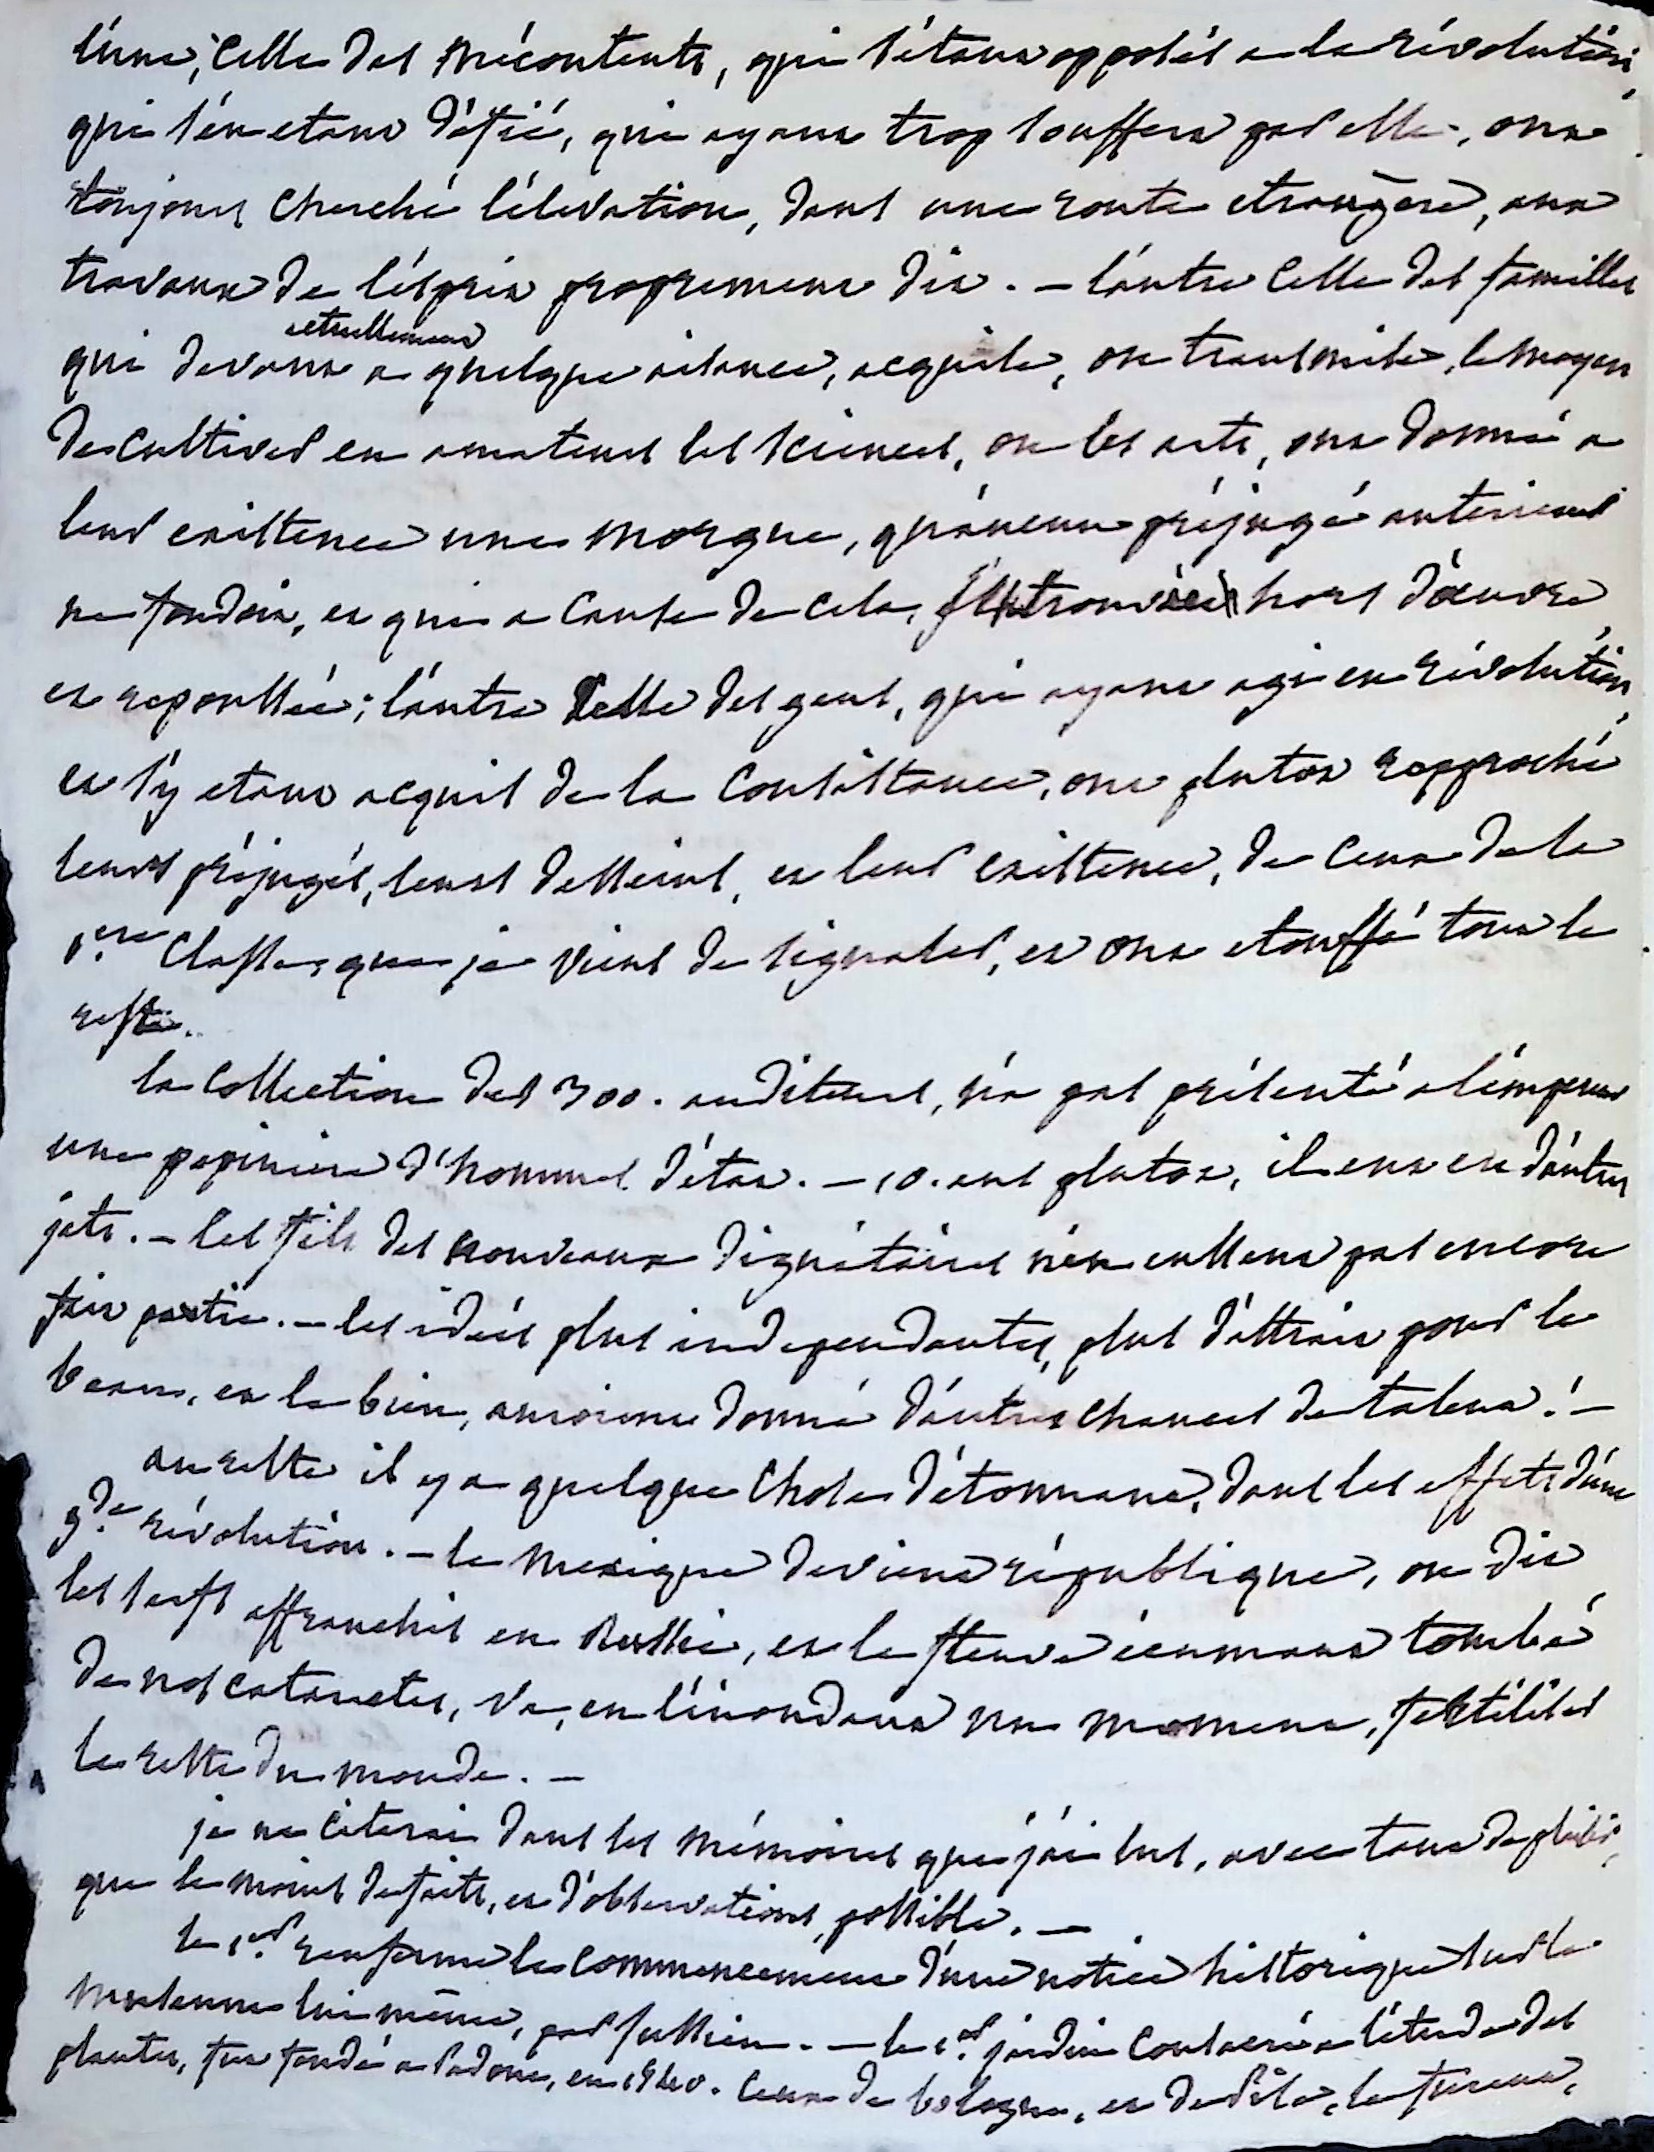 l'une, celle des mécontents, qui s'étant opposés a la révolution,
qui s'en etant défié, qui ayant trop souffert par elle, ont
toujours cherché l'élevation, dans une route etrangère, aux
travaux de l'ésprit proprement dit. — l'autre celle des familles
actuellement
qui devant a quelque aisance, acquise, ou transmise, le moyen
de cultiver en amateurs les sciences, ou les arts, ont donné a
leur existence une morgue, qu'aucun préjugé anterieur
ne fondoit, et qui a cause de cela, hors d'oeuvre,
et repoussée; l'autre celle des gens, qui ayant agi en révolution,
et s'y etant acquis de la consistance, ont plutot rapproché
leurs préjugés, leurs desseins, et leur existence, de ceux de la
1.ere classe, que je viens de signaler, et ont etouffé tout le
reste.
la collection des 300. auditeurs, n'a pas présenté a l'émpereur
une pepiniere d'hommes d'état. — 10. ans plutot, il eut eu d'autres
jets. — les fils des nouveaux dignitaires n'en eussent pas encore
fait partie. — les idées plus independantes, plus d'attrait pour le
beau, et le bien, auroient donné d'autres chances de talent! —
au reste il y a quelque chose d'étonnant, dans les effets d'une
g.de révolution. — le mexique devient république, on dit
les serfs affranchis en Russie, et le fleuve écumant tombé
de nos cataractes, va, en l'inondant un moment, fertiliser
le reste du monde. —
je ne citerai dans les mémoires que j'ai lus, avec tant de plaisir,
que le moins de faits, et d'observations, possible. —
le 1.er renferme le commencement d'une notice historique sur le
museum lui même, par Jussieu. — le 1.er jardin consacré a l'étude des
plantes, fut fondé a Padoue, en 1540. ceux de bologne, et de Pise, le furent,